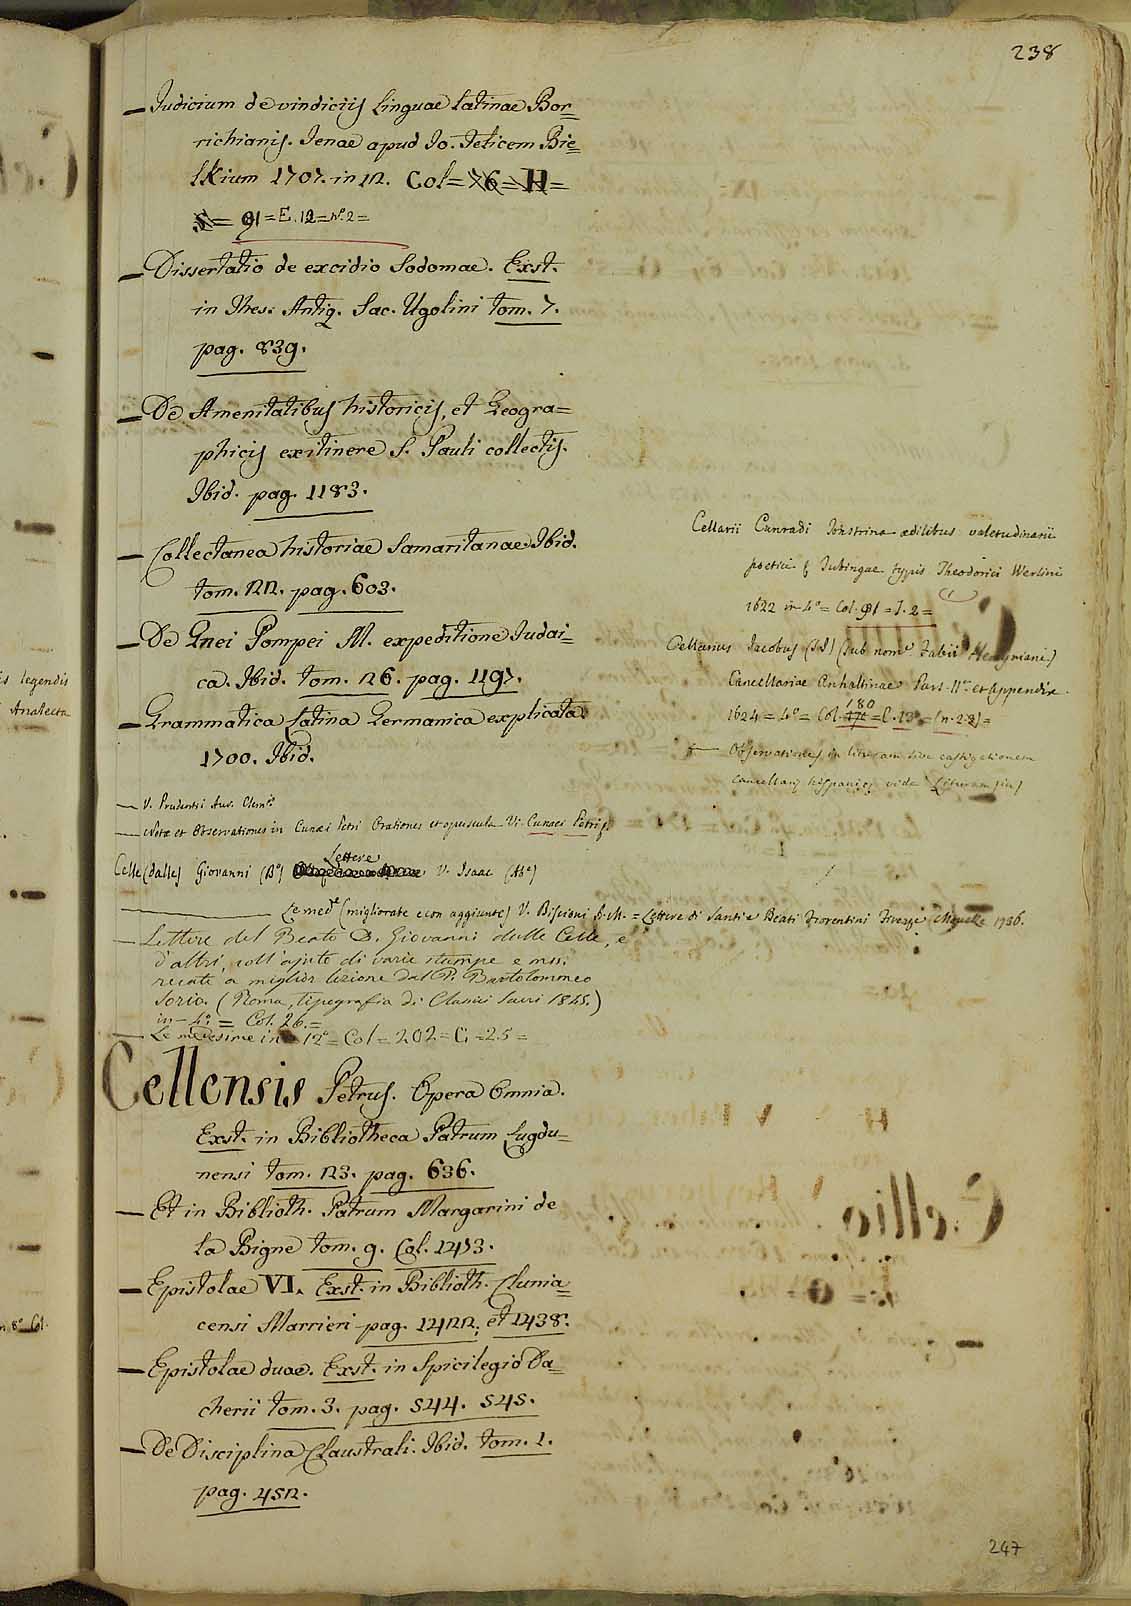 238
— Judicium de vindiciis Linguae Latinae Bor=
richianis. Jenae apud Jo. Feticem Bie=
lkium 1707. in 12. Col = 76 = H =
S = 91 = E. 12 = N.º 2 =
— Dissertatio de excidio Sodomae. Exst.
in Thes: Antiq. Sac. Ugolini tom. 7.
pag. 839.
— De Amenitatibus historicis, et Geogra=
phicis ex itinere S. Pauli collectis.
Ibid. pag. 1183.
— Collectanea historiae Samaritanae Ibid.
tom. 22. pag. 603.
— De Gnei Pompei M. expeditione Judai=
ca. Ibid. tom. 26. pag. 1197.
— Grammatica Latina Germanica explicata
1700. Ibid.
— V. Prudentii Aur. Clem.tis
— Notæ et Observationes in Cunæi Petri Orationes et opuscula V. Cunaei Petri
Celle (dalle) Giovanni (B.º) Lettere V. Isaac (Ab.e)
— Le med.e (migliorate e con aggiunte) V. Biscioni A. M. = Lettere di Santi e Beati Fiorentini Firenze Moucke 1736.
— Lettere del Beato D. Giovanni dalle Celle, e
d'altri, coll'ajuto di varie stampe e mssi
recate a miglior lezione dal P. Bartolommeo
Sorio. (Roma, tipografia di Classici Sacri 1845.)
in-4.º = Col. 26. =
— Le medesime in 12º = Col = 202 = C = 25 =
Cellensis Petrus. Opera Omnia.
Exst. in Bibliotheca Patrum Lugdu=
nensi tom. 23. pag. 636.
— Et in Biblioth. Patrum Margarini de
la Bigne tom. 9. Col. 1273.
— Epistolae VI. Exst. in Biblioth. Clunia=
censi Marrieri pag. 1422; et 1438.
— Epistolae duae. Exst. in Spicilegio Da=
cherii tom. 3. pag. 544. 545.
— De Disciplina Claustrali. Ibid. tom. 1.
pag. 452.
Cellarii Cunradi Tonstrina ædilibus valetudinarii
poetici Tubingae typis Theodorici Werlini
1622 in 4º = Col. 91 = I. 2 =
Cellarius Jacobus (Sub nom.e Fabii
Cancellariae Anhaltinae Pars II.ª et Appendix.
1624 = 4º = Col. 180 = C. 13º = (n. 2.8) =
— Observationes in literam sive castigationem
Cancellariæ hispanicæ vide
247
is legendis
Analecta
n 8º Col.